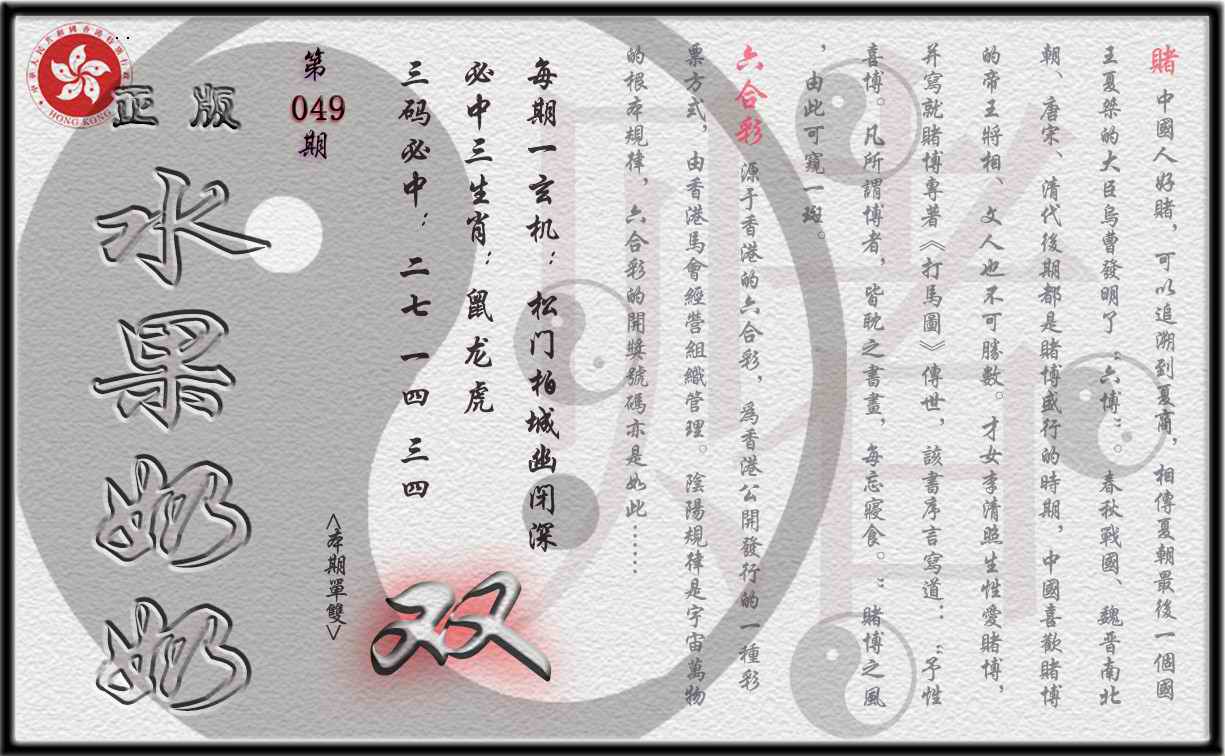 賭 中國人好賭，可以追溯到夏商，相傳夏朝最後一個國
王夏桀的大臣烏曹發明了“六博”。春秋戰國、魏晋南北
朝、唐宋、清代後期都是賭博盛行的時期，中國喜歡賭博
的帝王將相、文人也不可勝數。才女李清照生性愛賭博，
并寫就賭博專著《打馬圖》傳世，該書序言寫道：：“予性
喜博。凡所謂博者，皆耽之書晝，每忘寢食。”賭博之風
，由此可窺一斑。
六合彩 源于香港的六合彩，爲香港公開發行的一種彩
票方式，由香港馬會經營組織管理。陰陽規律是宇宙萬物
的根本規律，六合彩的開獎號碼亦是如此……
每期一玄机：松门柏城幽闭深
必中三生肖：鼠龙虎
三码必中：二七 一四 三四
第
049
期
<本期單雙>
双
正版
水果奶奶
HONG KONG